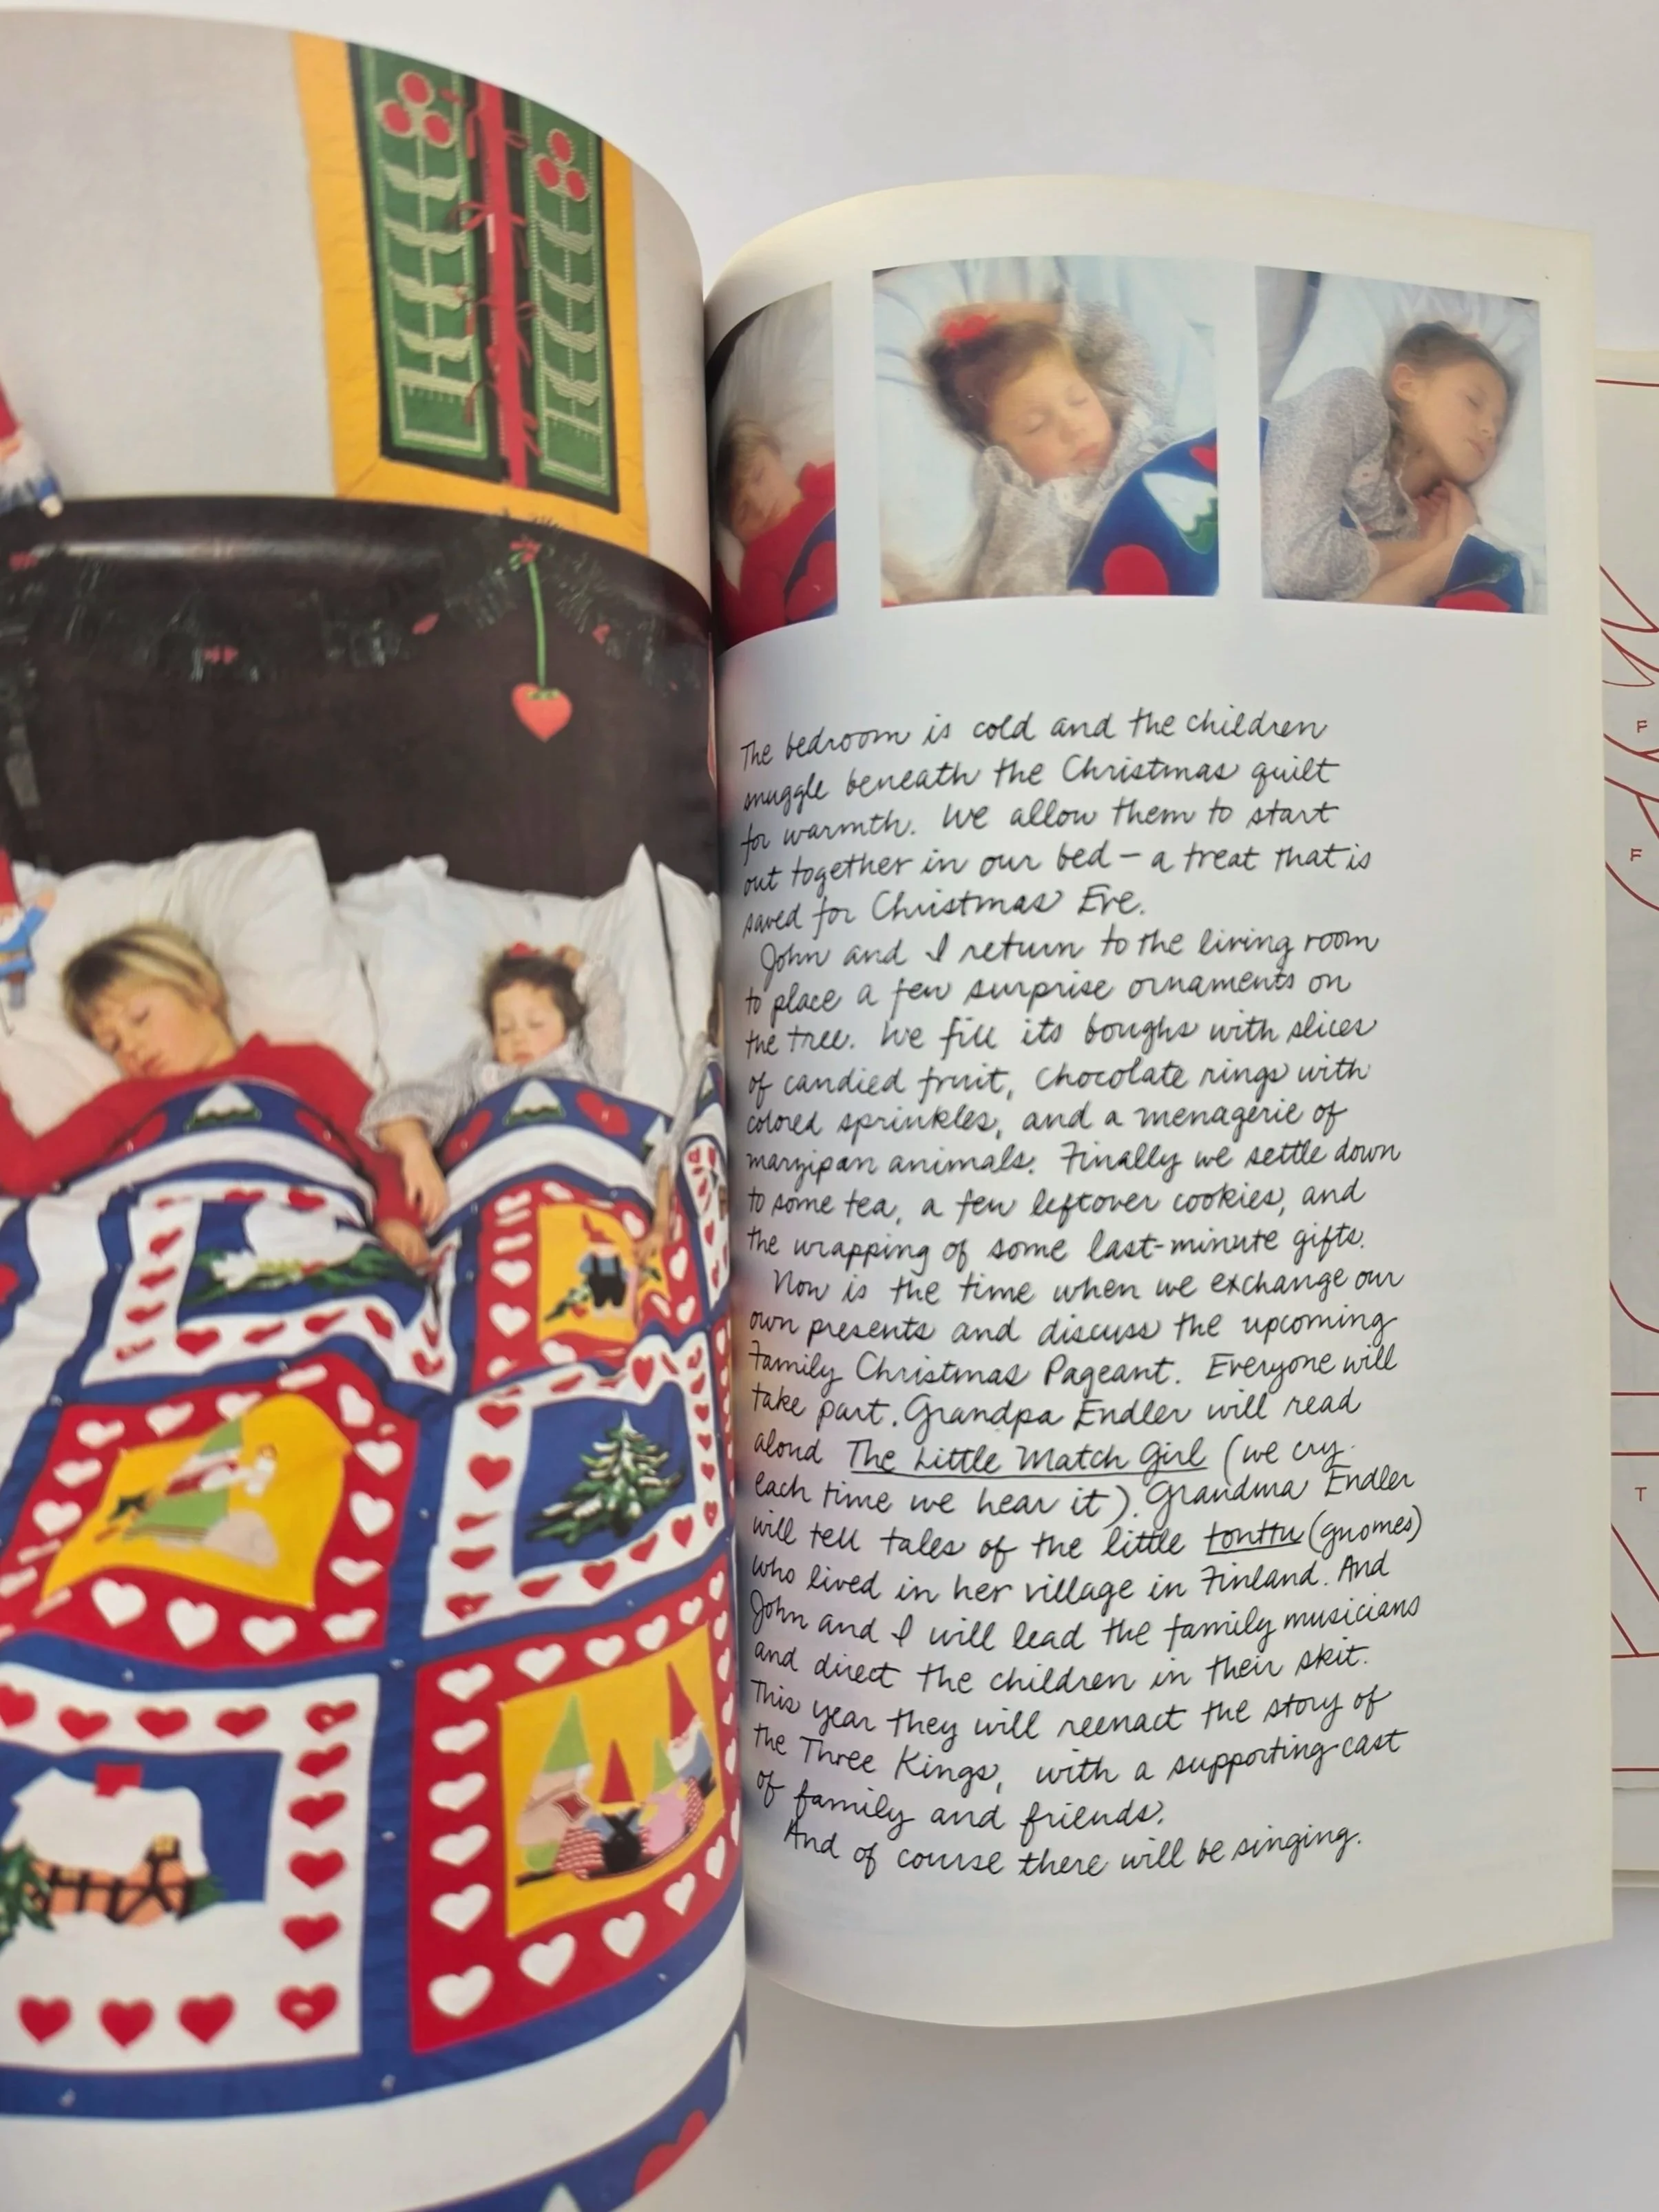 The bedroom is cold and the children
snuggle beneath the Christmas quilt
for warmth. We allow them to start
out together in our bed – a treat that is
saved for Christmas Eve.
John and I return to the living room
to place a few surprise ornaments on
the tree. We fill its boughs with slices
of candied fruit, chocolate rings with
colored sprinkles, and a menagerie of
marzipan animals. Finally we settle down
to some tea, a few leftover cookies, and
the wrapping of some last-minute gifts.
Now is the time when we exchange our
own presents and discuss the upcoming
Family Christmas Pageant. Everyone will
take part. Grandpa Endler will read
aloud The Little Match Girl (we cry
each time we hear it). Grandma Endler
will tell tales of the little tonttu (gnomes)
who lived in her village in Finland. And
John and I will lead the family musicians
and direct the children in their skit.
This year they will reenact the story of
the Three Kings, with a supporting cast
of family and friends.
And of course there will be singing.
F
F
T